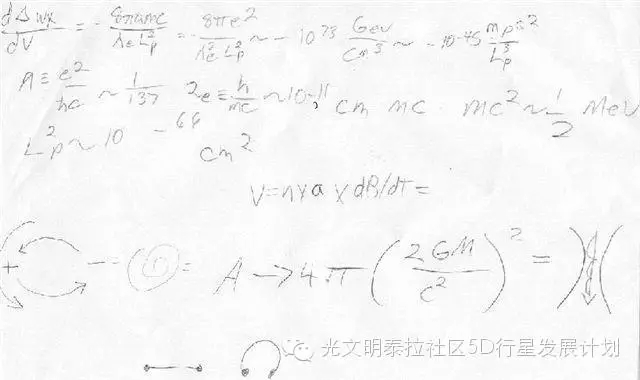 dΔwx/dV = - 8παmc/λe L²p = - 8πe²/λ²e L²p ~ - 10⁷³ Gev/cm³ ~ -10⁻⁴⁵ mpc²/L³p
A ≡ e²/ħc ~ 1/137 λe ≡ ħ/mc ~ 10⁻¹¹ cm mc mc² ~ 1/2 MeV
L²p ~ 10⁻⁶⁶ cm²
V = n x a x dB/dT =
A → 4π (2GM/c²)² =
光文明泰拉社区5D行星发展计划